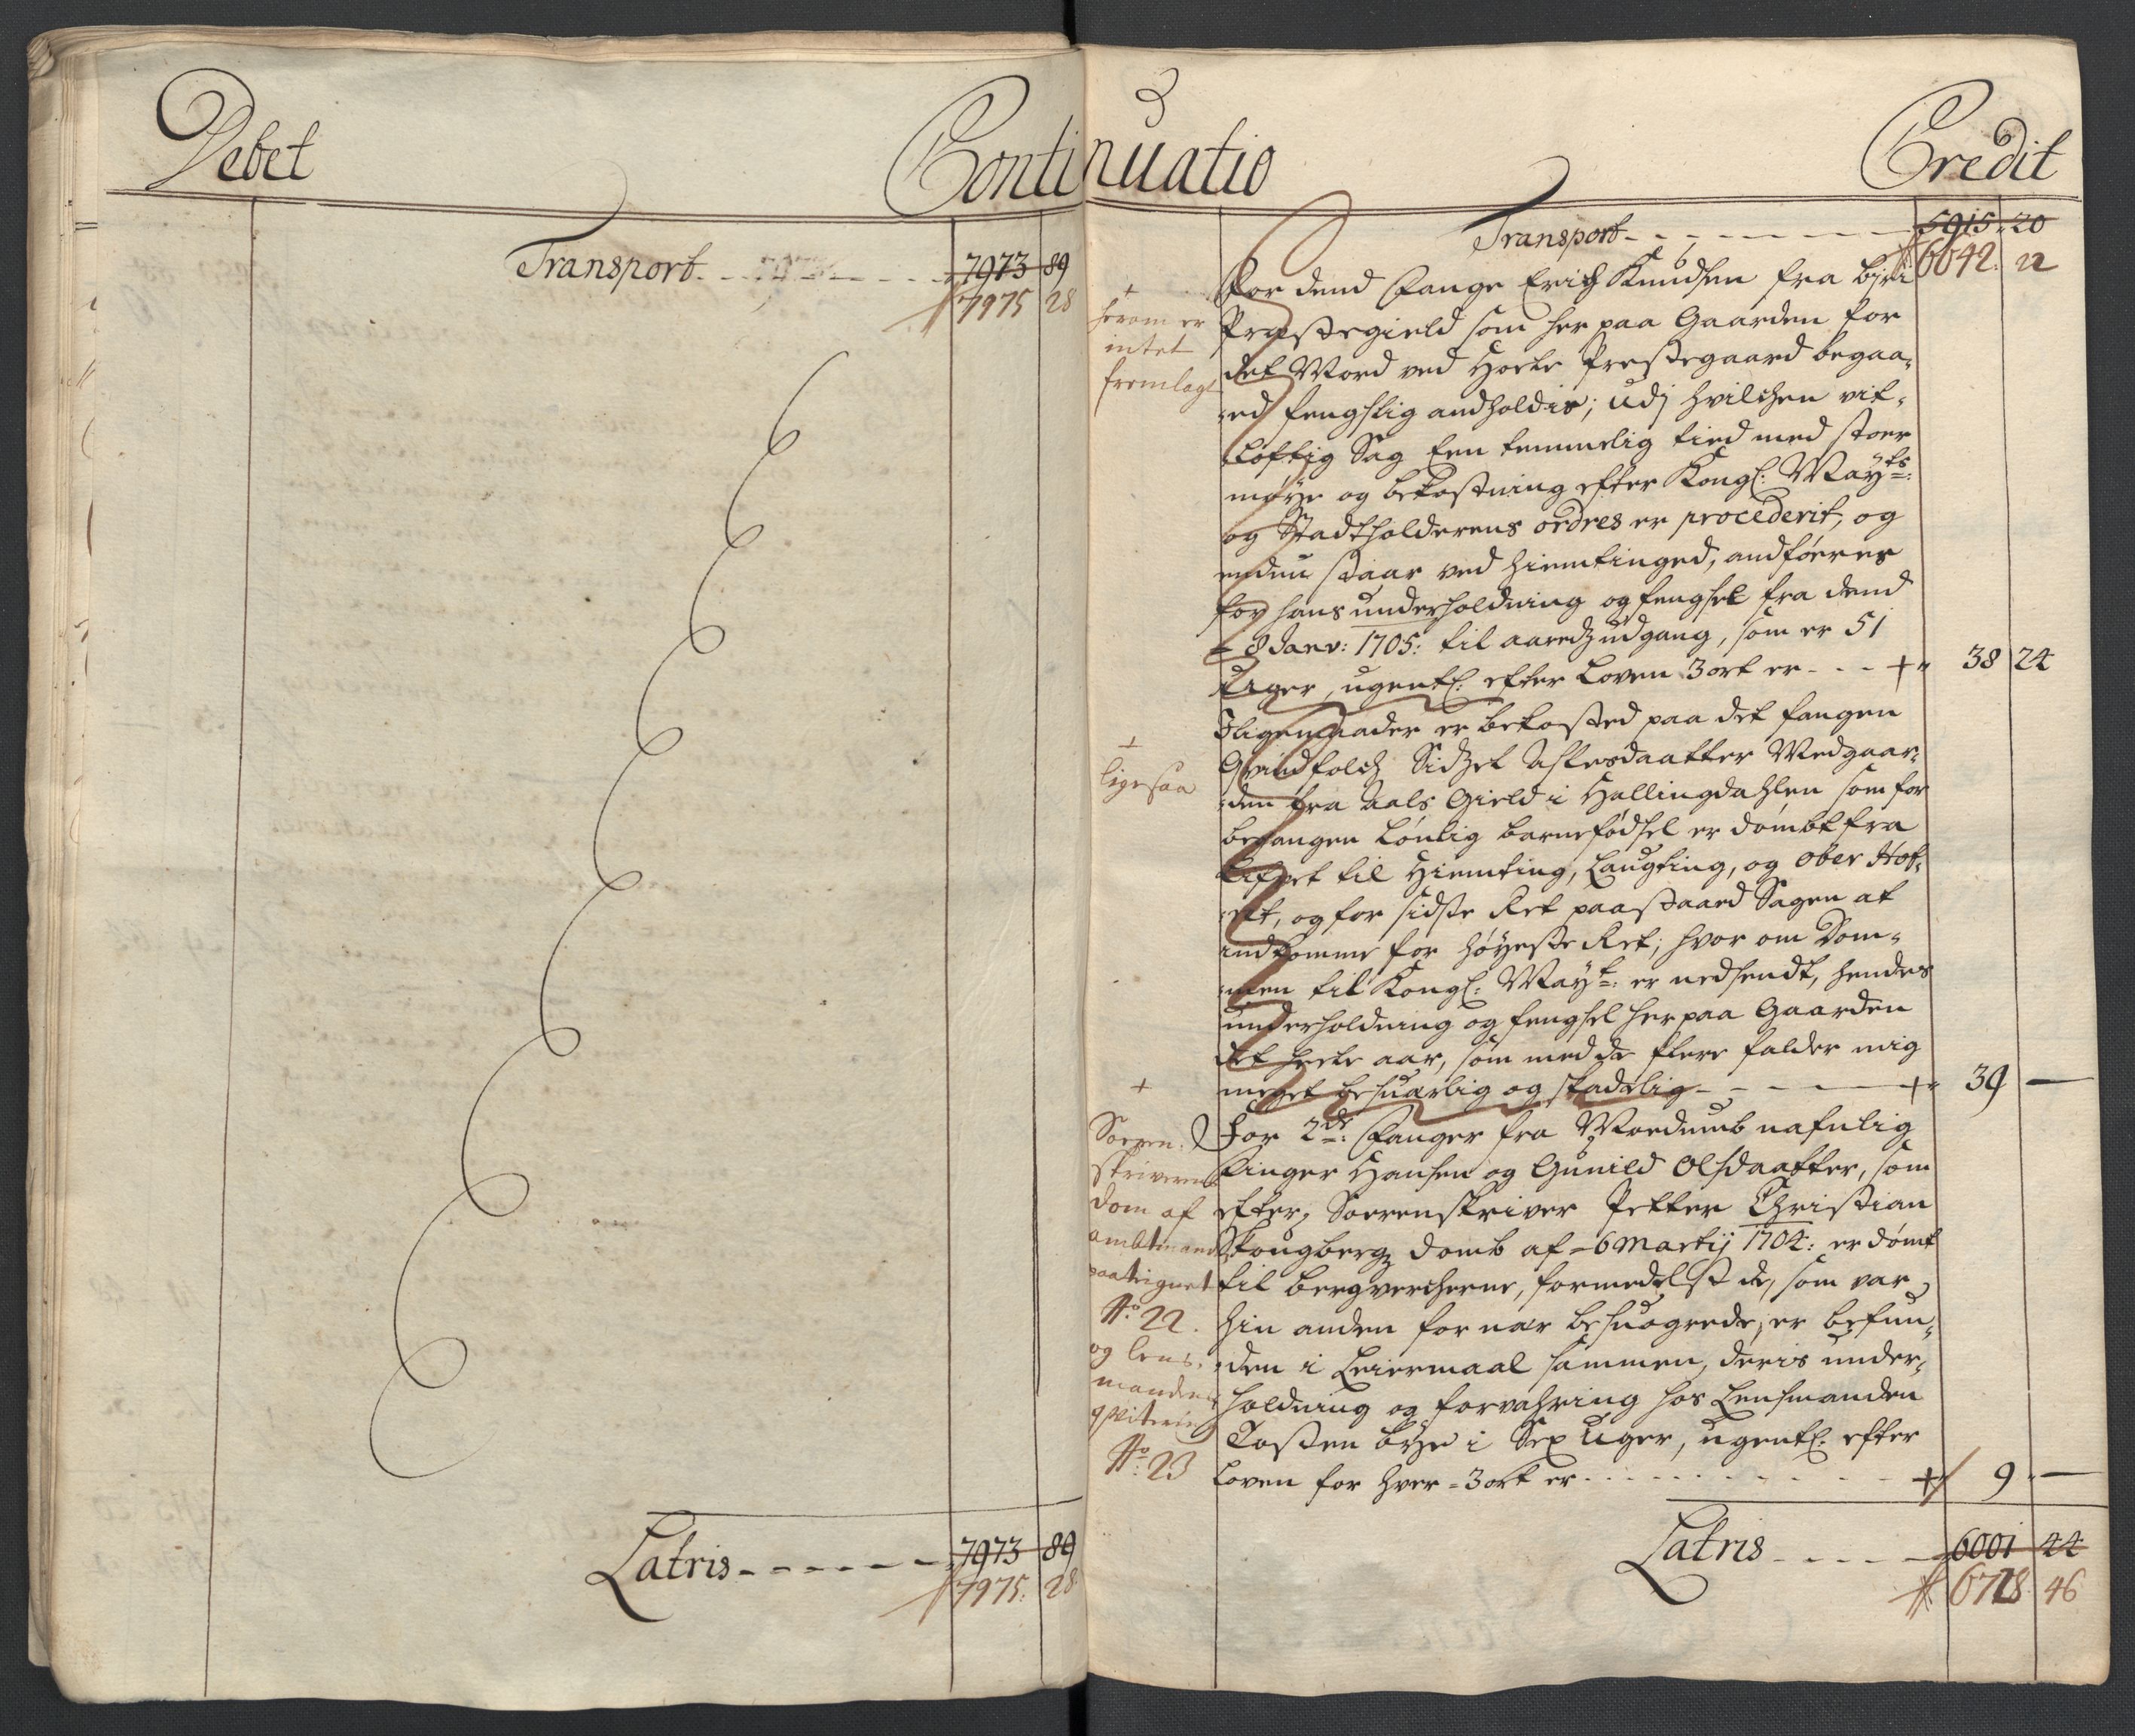 Debet
Continuatio
Credit
Transport
7973 89
7975 28
Latris
7973 89
7975: 28
Transport
5915 20
6642: 22
+
herom er
intet
fremlagt
For dend Fange Erich Knudsen fra Biri
Præstegield som her paa Gaarden for
det Mord ved Hoele Præstegaard begaa-
:ed fengslig andholdis; udj hvilchen vit-
:løftig Sag Een temmelig tied med stoer
møye og bekostning efter Kongl: Mayts:
og Stadtholderens ordres er procederit, og
endnu staar ved hiemtinged, andføeres
for hans underholdning og fengsel fra dend
= 8 Janv: 1705: til aaredz udgang, som er 51
Uger, ugentl: efter Loven 3 ort er - - - + 38 24
+
ligesaa
Iligemaader er bekosted paa det fangen
Qvindfolch Sidzel Aslesdaatter Medgaar-
:den fra Aals Gield i Hallingdahlen som for
begangen Lønlig barnefødsel er dømbt fra
Lifvet til Hiemting, Laugting, og Ober Hof-
:ret, og for sidste Ret paastaaed Sagen at
indkomme for høyeste Ret; hvor om Dom-
:men til Kongl: Mayt: er nedsendt, hendes
underholdning og fengsel her paa Gaarden
det heele aar, som med de flere falder mig
meget besuærlig og skadelig - - - + 39 —
+
Soeren-
skriverens
dom af
ambtmand
paateignet
No 22.
og lens-
mandens
qvitering
No: 23
For 2de: Fanger fra Moedumb nafnlig
Finger Hansen og Gunild Olsdaatter, som
efter Soerenskriver Petter Christian
Skougbergs domb af = 6 Martij 1704: er dømt
til bergvercherne, formedelst de, som var
hin anden for nær besuogrede, er befun-
:den i Leiermaal sammen, deris under-
holdning og forvahring hos Lensmanden
Tosten bye i Sex Uger, ugentl: efter
Loven for hver = 3 ort er - - - + 9 —
Latris
6001 44
6728 46